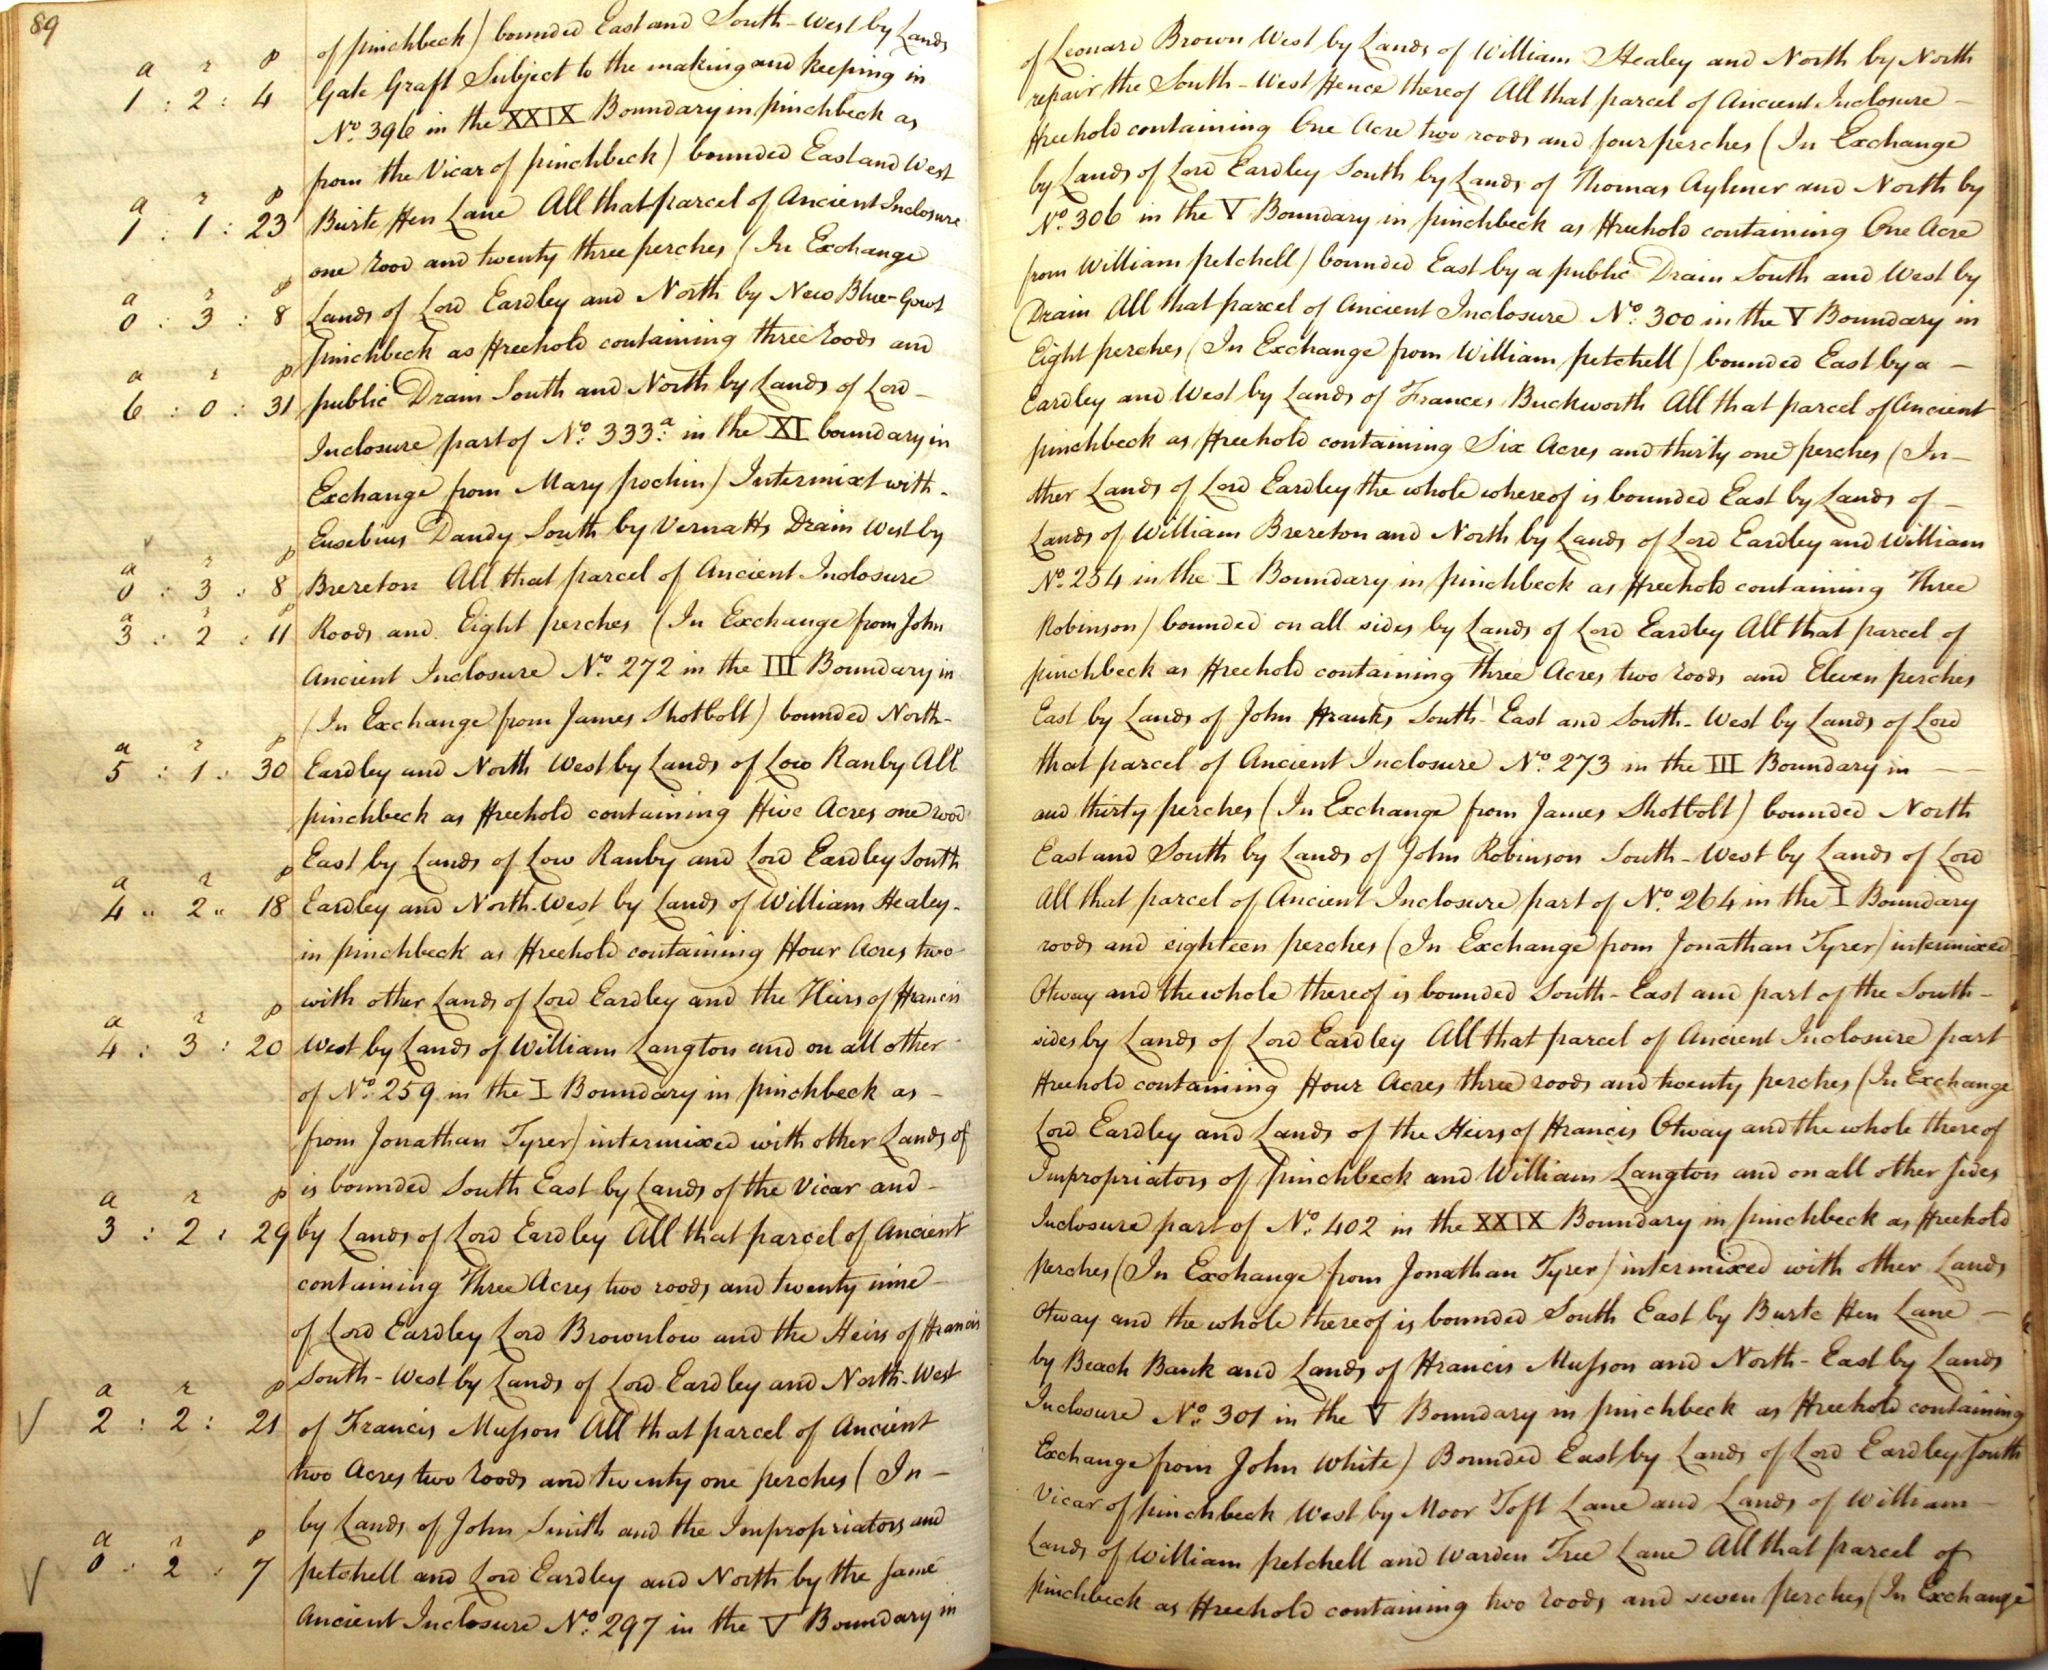 89
of Pinchbeck) bounded East and South-West by Lands of Leonard Brown West by Lands of William Healey and North by North
a r p
Gate Graft Subject to the making and keeping in repair the South-West Fence thereof All that parcel of Ancient Inclosure -
1 : 2 : 4 No. 396 in the XXIX Boundary in Pinchbeck as Freehold containing One Acre two roods and four perches (In Exchange
from the Vicar of Pinchbeck) bounded East and West by Lands of Lord Eardley South by Lands of Thomas Aylmer and North by
a r p
1 : 1 : 23 Burte Hen Lane All that parcel of Ancient Inclosure No. 306 in the V Boundary in Pinchbeck as Freehold containing One Acre
one rood and twenty three perches (In Exchange from William Petchell) bounded East by a public Drain South and West by
a r p
0 : 3 : 8 Lands of Lord Eardley and North by New Blue-Gowt Drain All that parcel of Ancient Inclosure No. 300 in the V Boundary in
Pinchbeck as Freehold containing three roods and Eight perches (In Exchange from William Petchell) bounded East by a -
a r p
6 : 0 : 31 public Drain South and North by Lands of Lord - Eardley and West by Lands of Frances Buckworth All that parcel of Ancient
Inclosure part of No. 333.a in the XI boundary in Pinchbeck as Freehold containing Six Acres and thirty one perches (In -
Exchange from Mary Pochin) Intermixt with - other Lands of Lord Eardley the whole whereof is bounded East by Lands of -
Eusebius Dandy South by Vernatts Drain West by Lands of William Brereton and North by Lands of Lord Eardley and William
a r p
0 : 3 : 8 Brereton All that parcel of Ancient Inclosure No. 254 in the I Boundary in Pinchbeck as Freehold containing Three
a r p
3 : 2 : 11 Roods and Eight perches (In Exchange from John Robinson) bounded on all sides by Lands of Lord Eardley All that parcel of
Ancient Inclosure No. 272 in the III Boundary in Pinchbeck as Freehold containing three Acres two roods and Eleven perches
(In Exchange from James Shotbolt) bounded North - East by Lands of John Franks South East and South-West by Lands of Lord
a r p
5 : 1 : 30 Eardley and North West by Lands of Low Ranby All that parcel of Ancient Inclosure No. 273 in the III Boundary in - -
Pinchbeck as Freehold containing Five Acres one rood and thirty perches (In Exchange from James Shotbolt) bounded North
East by Lands of Low Ranby and Lord Eardley South East and South by Lands of John Robinson South-West by Lands of Lord
a r p
4 " 2 " 18 Eardley and North-West by Lands of William Healey - All that parcel of Ancient Inclosure part of No. 264 in the I Boundary
in Pinchbeck as Freehold containing Four Acres two roods and eighteen perches (In Exchange from Jonathan Tyrer) intermixed
with other Lands of Lord Eardley and the Heirs of Francis Otway and the whole thereof is bounded South-East and part of the South -
a r p
4 : 3 : 20 West by Lands of William Langton and on all other sides by Lands of Lord Eardley All that parcel of Ancient Inclosure part
of No. 259 in the I Boundary in Pinchbeck as - Freehold containing Four Acres three roods and twenty perches (In Exchange
from Jonathan Tyrer) intermixed with other Lands of Lord Eardley and Lands of the Heirs of Francis Otway and the whole thereof
is bounded South East by Lands of the Vicar and - Impropriators of Pinchbeck and William Langton and on all other sides
a r p
3 : 2 : 29 by Lands of Lord Eardley All that parcel of Ancient Inclosure part of No. 402 in the XXIX Boundary in Pinchbeck as Freehold
containing Three Acres two roods and twenty nine perches (In Exchange from Jonathan Tyrer) intermixed with other Lands
of Lord Eardley Lord Brownlow and the Heirs of Francis Otway and the whole thereof is bounded South East by Burte Hen Lane -
South-West by Lands of Lord Eardley and North-West by Beach Bank and Lands of Francis Musson and North-East by Lands
a r p
2 : 2 : 21 of Francis Musson All that parcel of Ancient Inclosure No. 301 in the V Boundary in Pinchbeck as Freehold containing
two Acres two roods and twenty one perches (In - Exchange from John White) Bounded East by Lands of Lord Eardley South
by Lands of John Smith and the Impropriators and Vicar of Pinchbeck West by Moor Toft Lane and Lands of William -
a r p
0 : 2 : 7 Petchell and Lord Eardley and North by the same Lands of William Petchell and Warden Tree Lane All that parcel of
Ancient Inclosure No. 297 in the V Boundary in Pinchbeck as Freehold containing two roods and seven perches (In Exchange